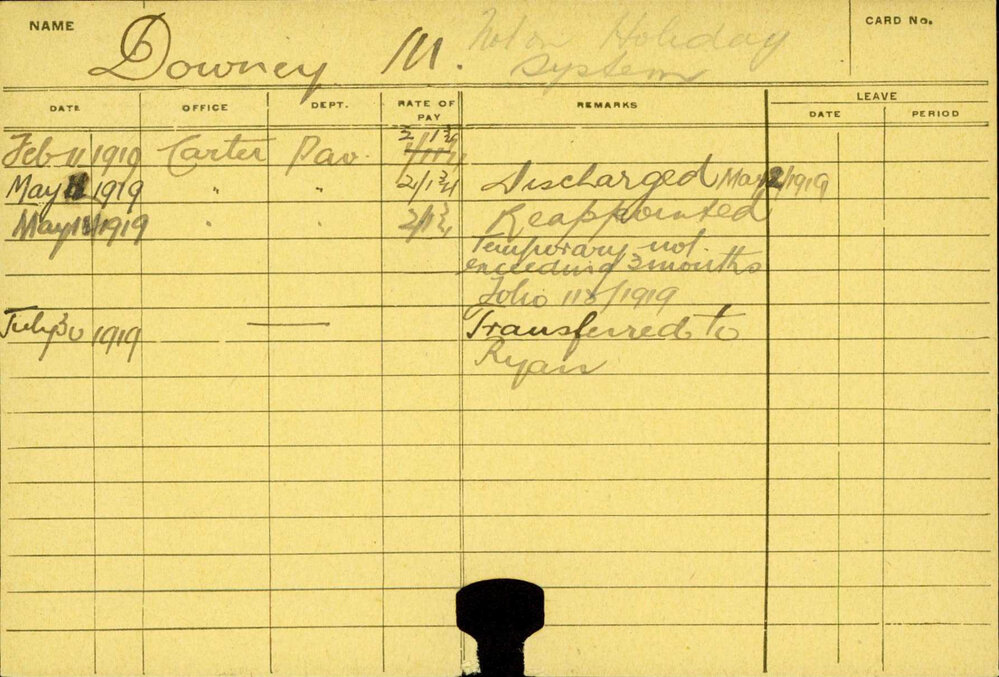 NAME Downey M. Not on Holiday CARD No.
system
DATE OFFICE DEPT. RATE OF PAY REMARKS LEAVE
DATE PERIOD
2/1 3/4
Feb 11 1919 Carter Pav.
May 1919 " " 2/1 3/4 Discharged May 1919
May 1919 " " 2/1 3/4 Reappointed
Temporary not
exceeding 3 months
Folio 118/1919
July 30 1919 — Transferred to
Ryan